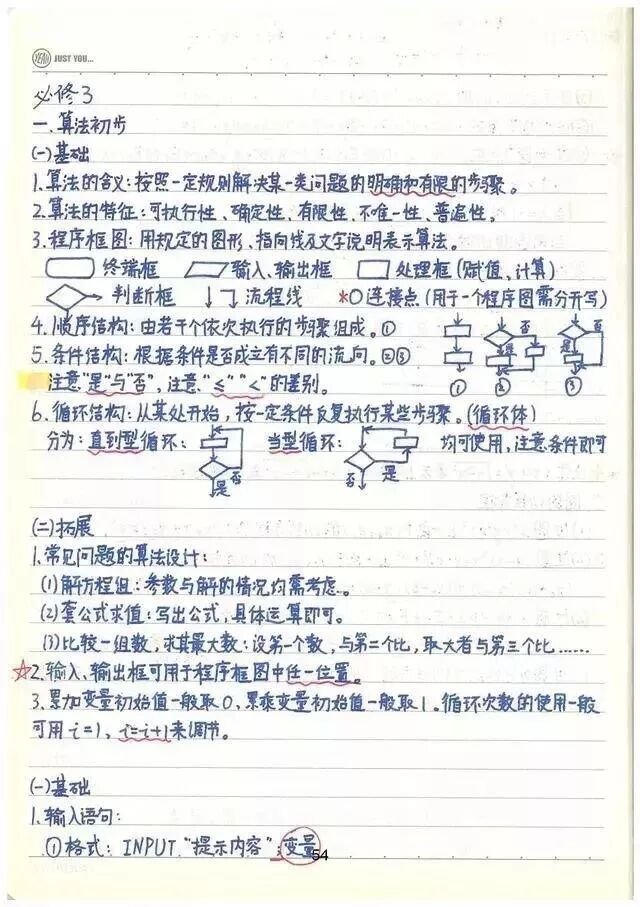 YEAH JUST YOU...
必修3
一.算法初步
(一)基础
1.算法的含义:按照一定规则解决某一类问题的明确和有限的步骤。
2.算法的特征:可执行性、确定性、有限性、不唯一性、普遍性。
3.程序框图:用规定的图形、指向线及文字说明表示算法。
终端框 输入、输出框 处理框(赋值、计算)
判断框 流程线 *○连接点(用于一个程序图需分开写)
4.顺序结构:由若干个依次执行的步骤组成。①
5.条件结构:根据条件是否成立有不同的流向。②③
注意"是"与"否",注意"≤""<"的差别。
是 否 是 否
① ② ③
6.循环结构:从某处开始,按一定条件反复执行某些步骤。(循环体)
分为:直到型循环: 否 是 当型循环: 否 是 均可使用,注意条件即可
(二)拓展
1.常见问题的算法设计:
(1)解方程组:参数与解的情况均需考虑。
(2)套公式求值:写出公式,具体运算即可。
(3)比较一组数,求其最大数:设第一个数,与第二个比,取大者与第三个比……
☆2.输入、输出框可用于程序框图中任一位置。
3.累加变量初始值一般取0,累乘变量初始值一般取1。循环次数的使用一般
可用i=1,i=i+1来调节。
(一)基础
1.输入语句:
①格式:INPUT "提示内容";变量
54